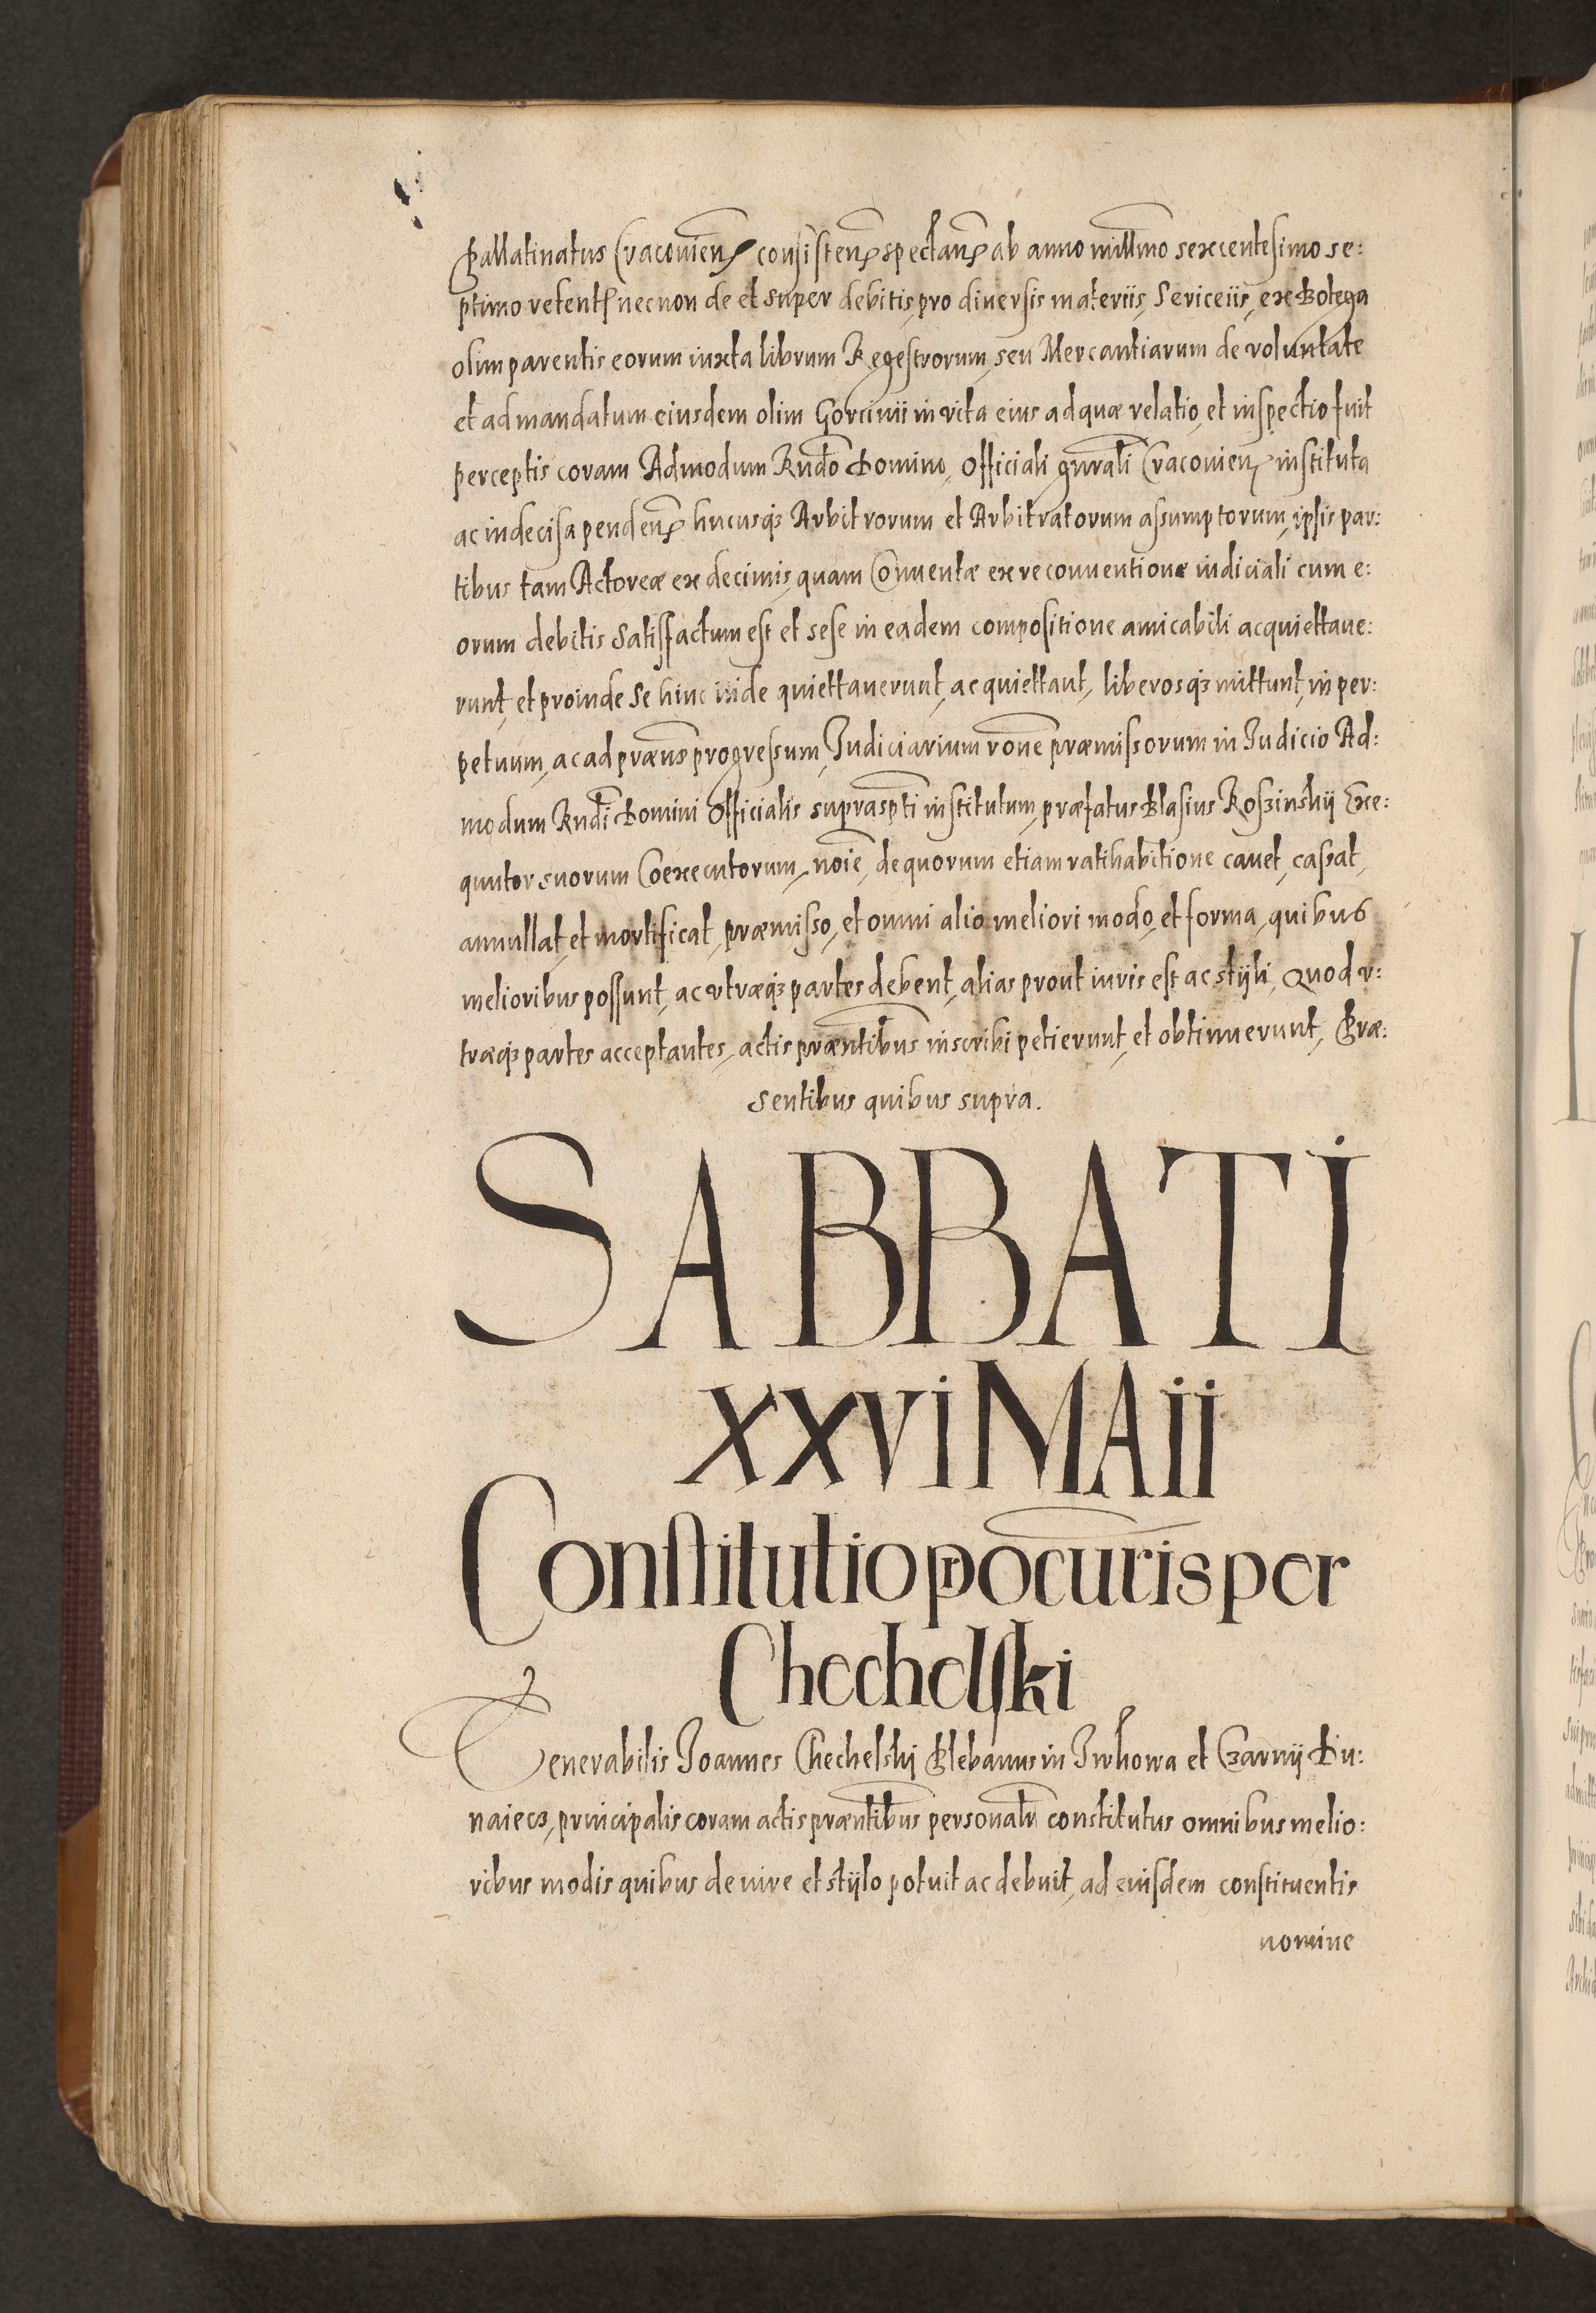 Pallatinatus Cracovien consisten spectan ab anno millmo sexcentesimo se:
ptimo retent necnon de et super debitis, pro diversis materiis, Sericeiis, ex Botega
olim parentis eorum iuxta librum Regestrorum, seu Mercantiarum de voluntate
et ad mandatum eiusdem olim Gorcinii in vita eius ad quæ relatio, et inspectio fuit
perceptis coram Admodum Rndo Domino, Officiali gnrali Cracovien instituta
ac indecisa penden hucusq; Arbitrorum et Arbitratorum assumptorum, ipsis par:
tibus tam Actoreæ ex decimis, quam Conventæ ex reconventione iudiciali cum e:
orum debitis Satisfactum est et sese in eadem compositione amicabili acquiettave:
runt, et proinde Se hinc inde quiettaverunt, ac quiettant, liberosq; mittunt, in per:
petuum, ac ad præns progressum, Iudiciarium rone præmissorum in Iudicio Ad:
modum Rndi Domini Officialis supraspti institutum, præfatus Blasius Roszinskÿ Exe:
quutor suorum Coexecutorum, noie, de quorum etiam ratihabitione cavet, cassat,
annullat, et mortificat, præmisso, et omni alio meliori modo, et forma, quibus
melioribus possunt, ac utræq; partes debent, alias prout iuris est ac stÿli, Quod u:
træq; partes acceptantes, actis præntibus inscribi petierunt, et obtinuerunt, Præ:
sentibus quibus supra.
SABBATI
XXVI MAII
Constitutio procuris per
Chechelski
Venerabilis Joannes Chechelskj Plebanus in Jwkowa et Czarnÿ Du:
naiecz, principalis coram actis præntibus personalr constitutus omnibus melio:
ribus modis quibus de iure et stÿlo potuit ac debuit, ad eiusdem constituentis
nomine